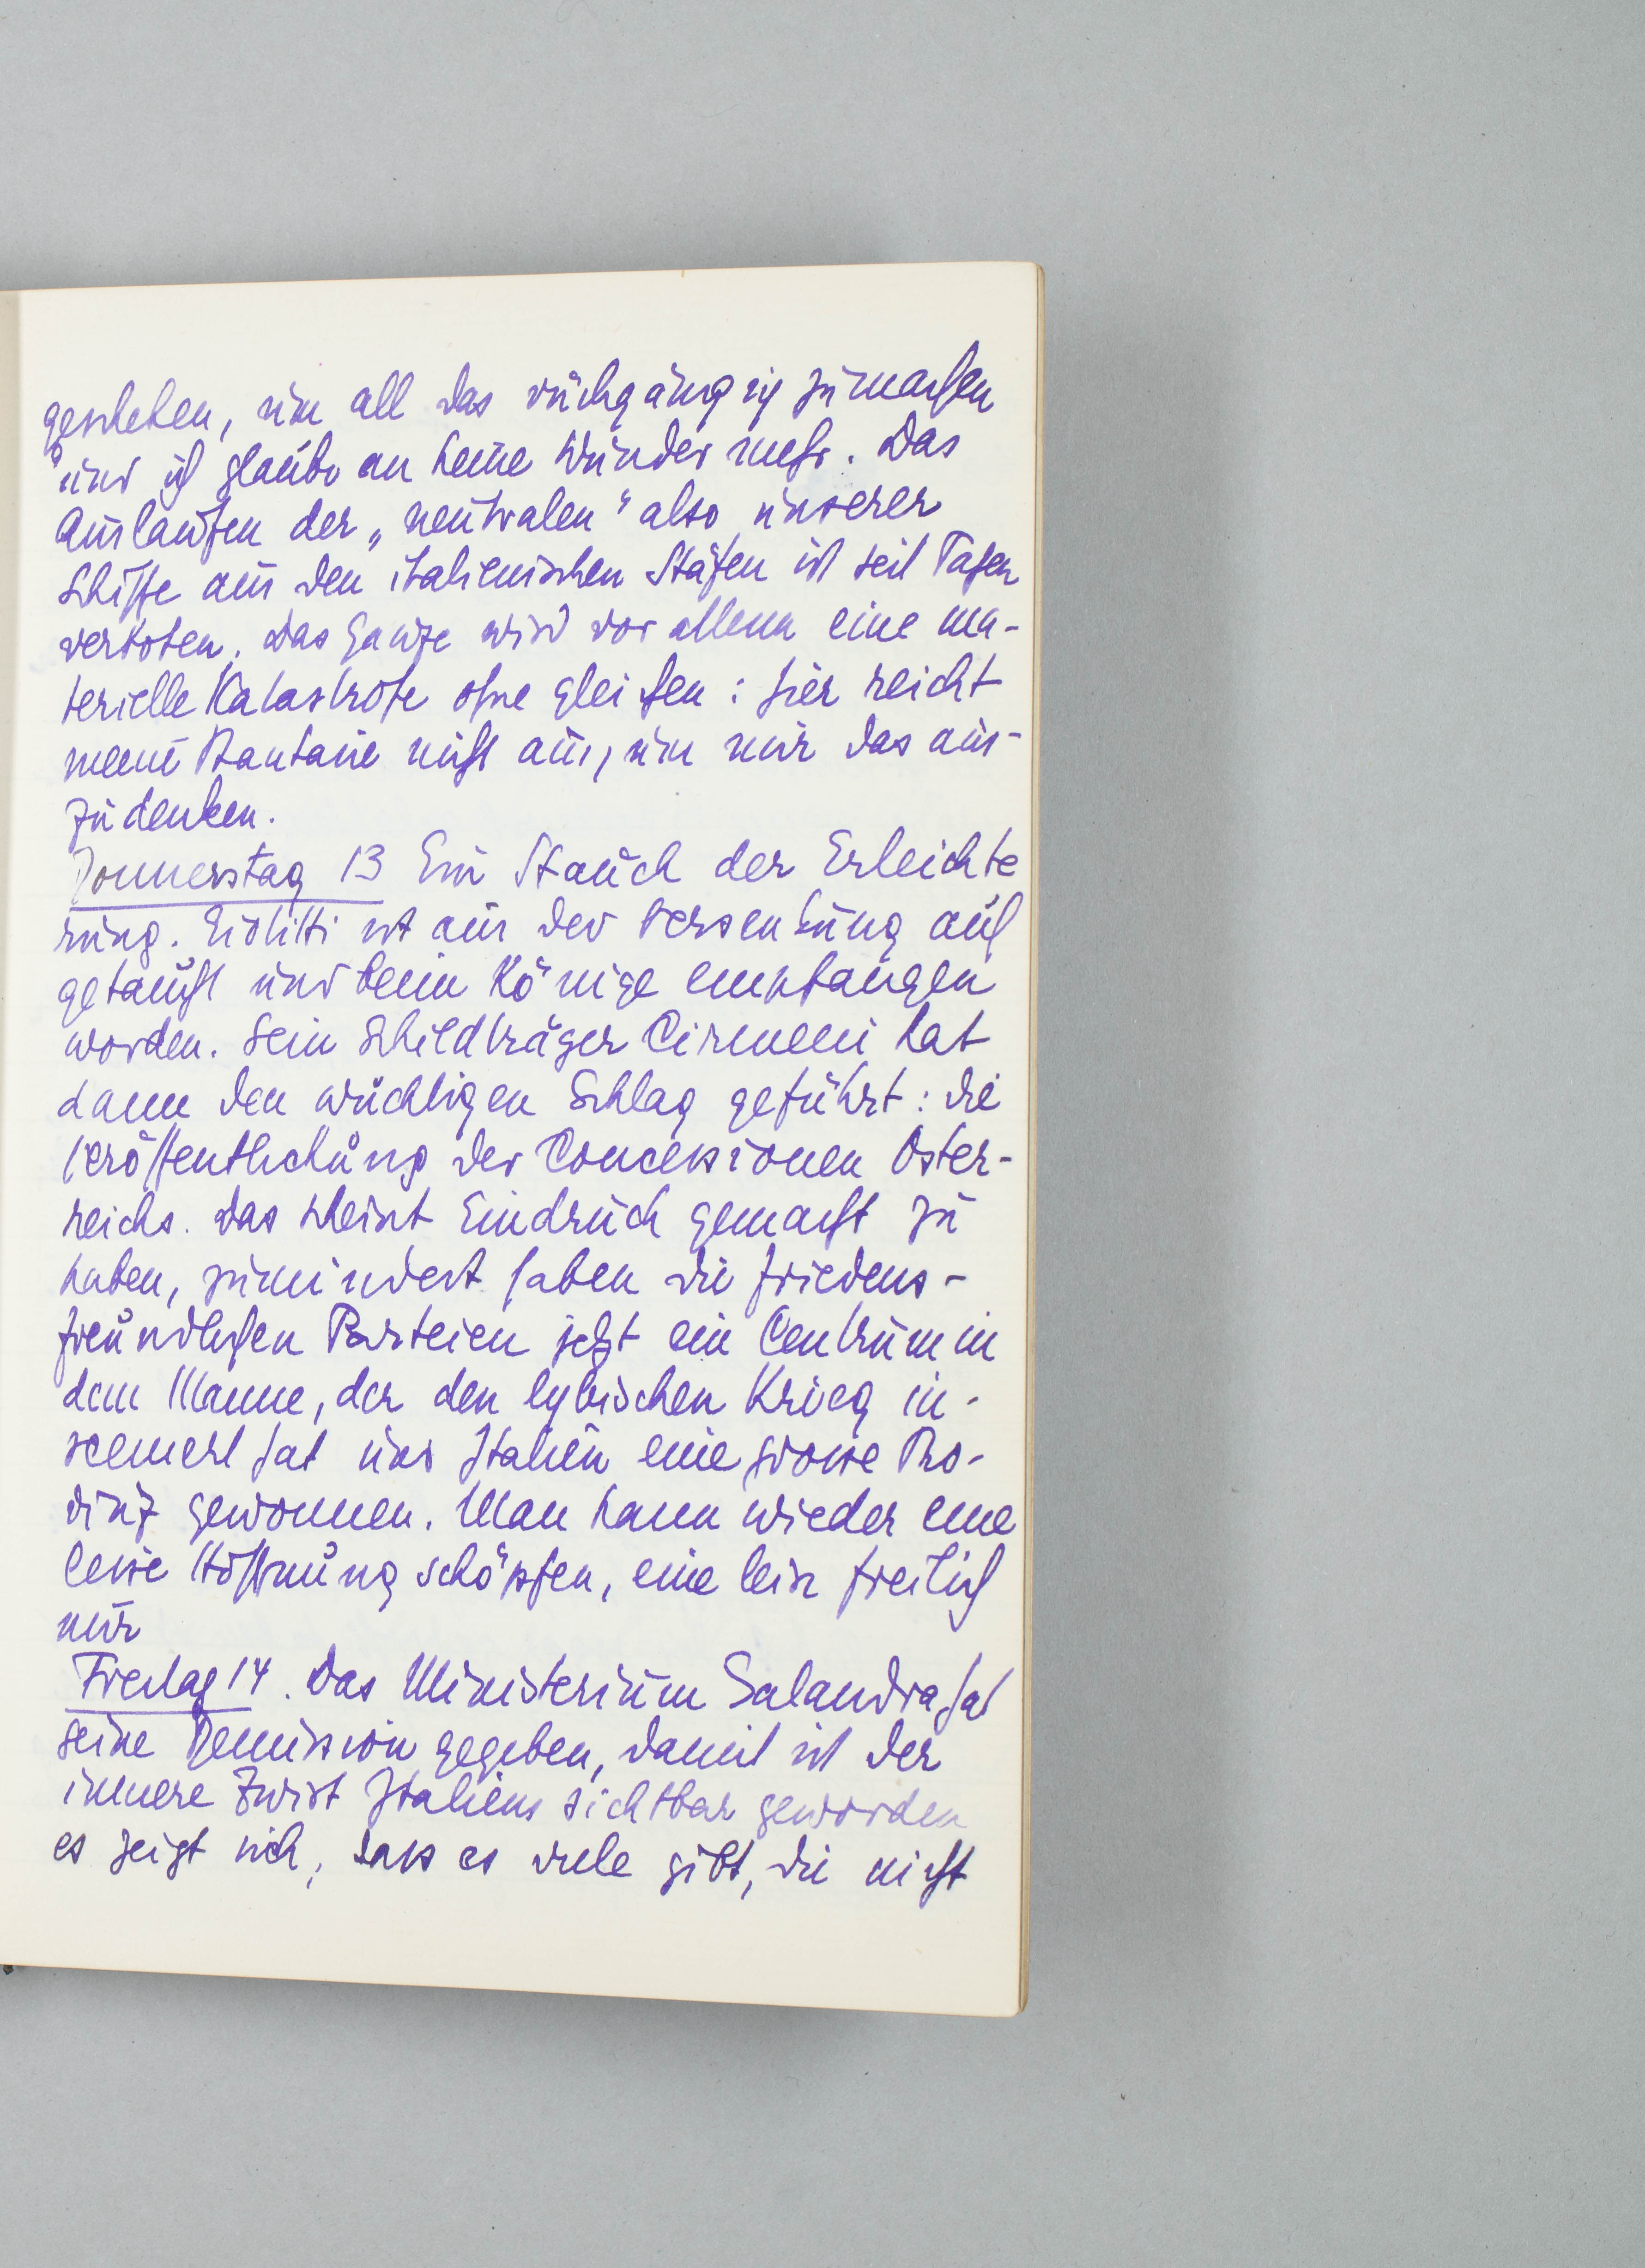 geschehen, um all das rückgängig zu machen
und ich glaube an keine Wunder mehr. Das
Auslaufen der „neutralen“ also unserer
Schiffe aus den italienischen Häfen ist seit Tagen
verboten. Das Ganze wird vor allem eine ma-
terielle Katastrofe ohne gleichen: hier reicht
meine Phantasie nicht aus, um mir das aus-
zudenken.
Donnerstag 13 Ein Hauch der Erleichte
rung. Giolitti ist aus der Versenkung auf
getaucht und beim Könige empfangen
worden. Sein Schildträger Cirmeni hat
dann den wuchtigen Schlag geführt: die
Veröffentlichung der Concessionen Öster-
reichs. Das scheint Eindruck gemacht zu
haben, zumindest haben die friedens-
freundlichen Parteien jetzt ein Centrum in
dem Manne, der den lybischen Krieg in-
sceniert hat und Italien eine grosse Pro-
vinz gewonnen. Man kann wieder eine
leise Hoffnung schöpfen, eine leise freilich
nur
Freitag 14. Das Ministerium Salandra hat
seine Demission gegeben, damit ist der
innere Zwist Italiens sichtbar geworden
es zeigt sich, dass es viele gibt, die nicht